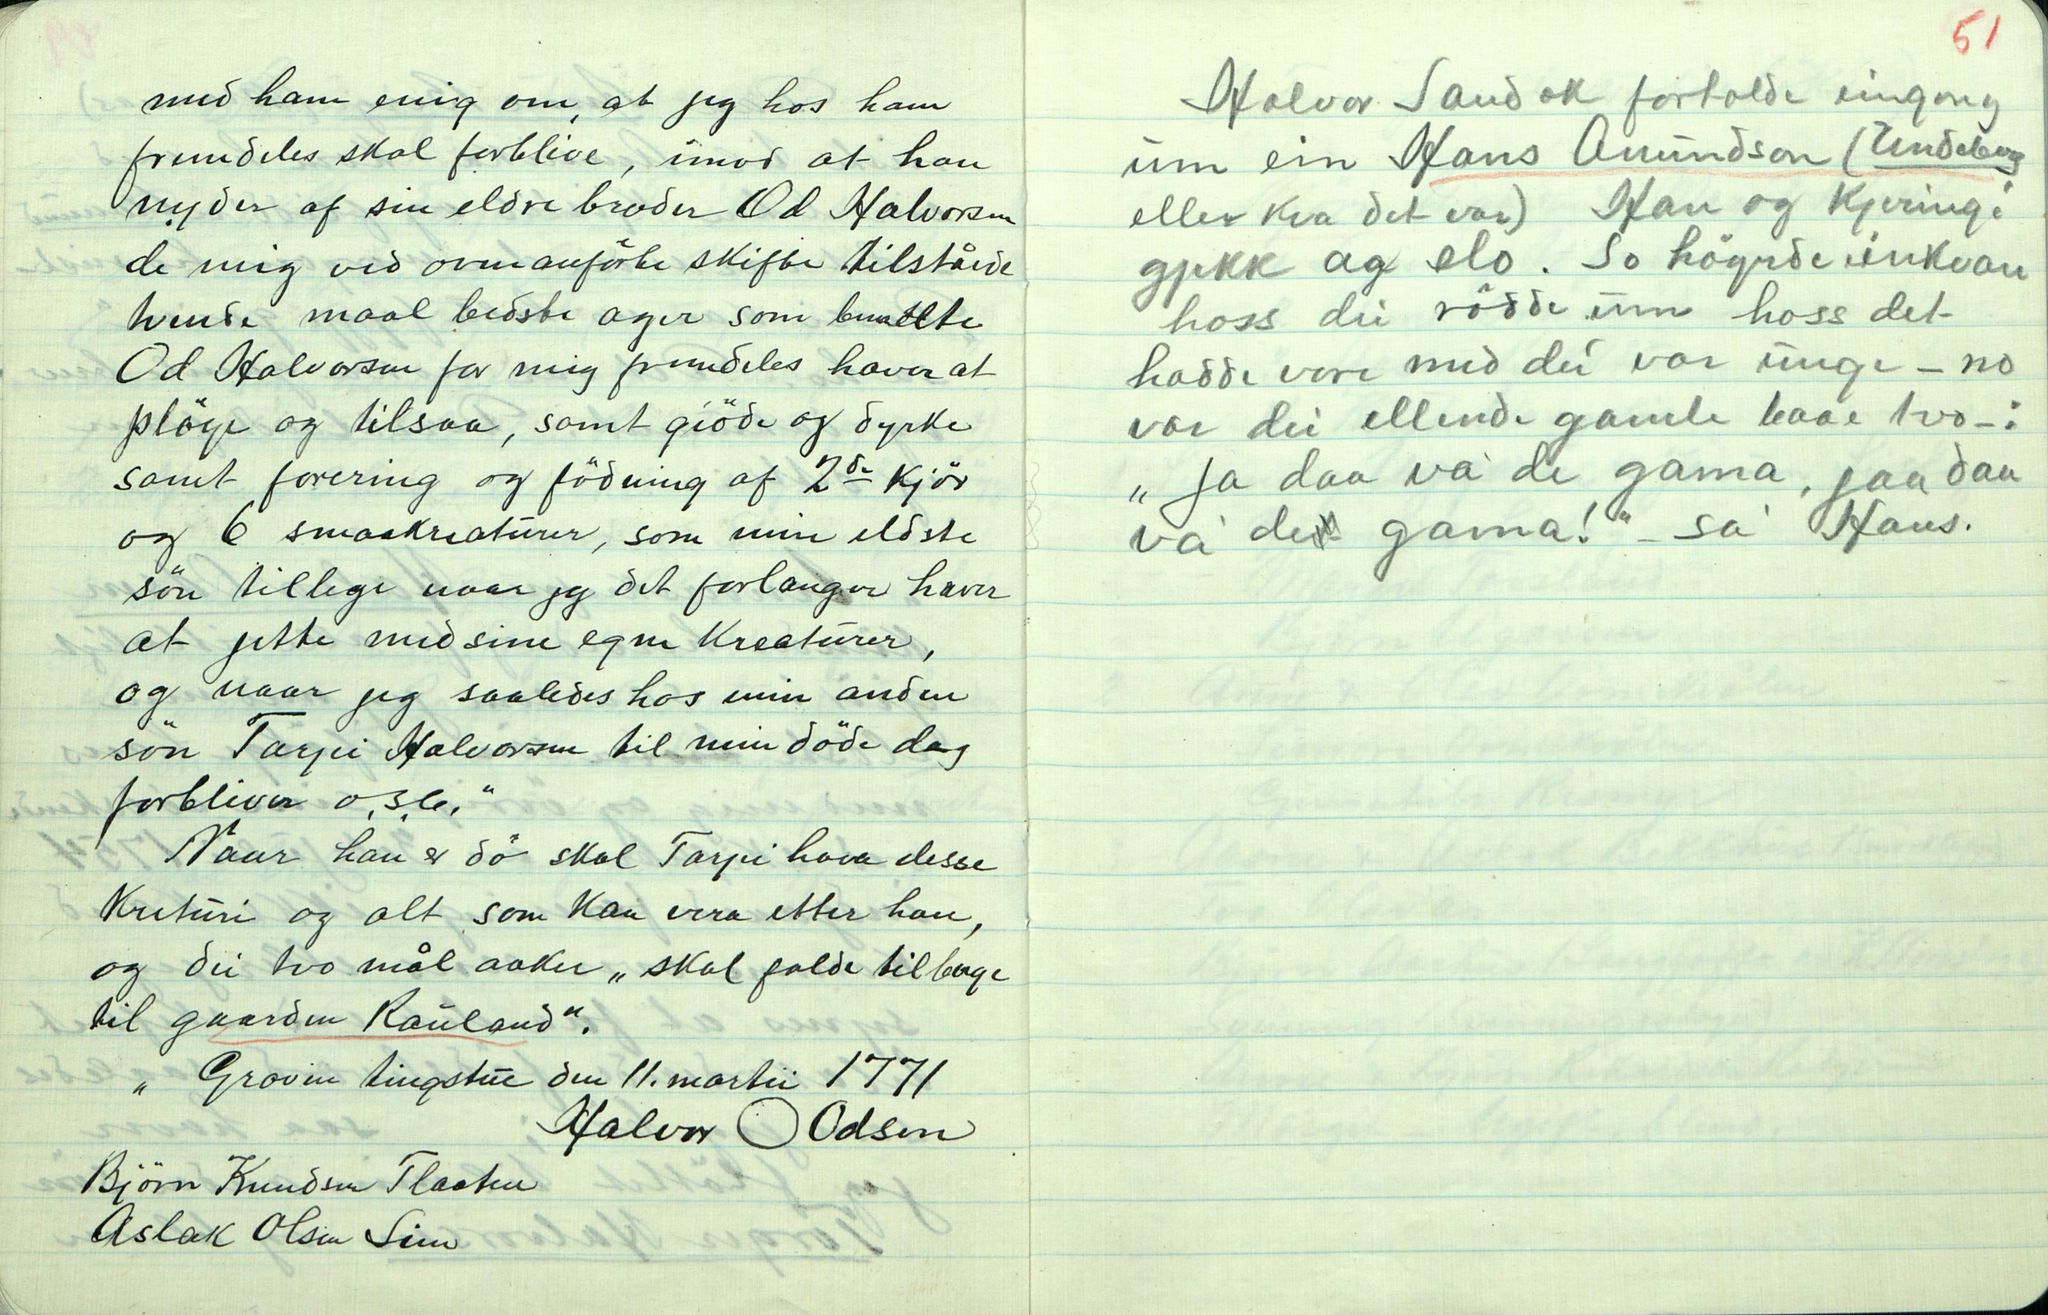 med ham enig om, at jeg hos ham
fremdeles skal forblive, imod at han
nyder af sin eldre broder Od Halvorsen
de mig ved ovenanförte skifte tilståede
tvende maal bedste ager som bemelte
Od Halvorsen for mig fremdeles haver at
plöye og tilsaa, samt giöde og dyrke
samt forering og födning af 2de kjör
og 6 smaakreaturer, som min eldste
sön tillege naar jeg det forlanger haver
at jette med sine egne kreaturer,
og naar jeg saaledes hos min anden
sön Tarjei Halvorsen til min döde dag
forbliver o.s.v."
Naar han er dö skal Tarjei hava desse
krituri og alt som kan vera etter han,
og dei tvo mål aaker „skal falde tilbage
til gaarden Rauland".
„Grovin tingstue den 11. martii 1771
Halvor O Odsen
Björn Knudsen Flaaten
Aslak Olsen Lien
51
Halvor Sandok fortalde eingong
um ein Hans Anundson (Undeberg
eller kva det var) Han og kjeringi
gjekk ag slo. So högrde einkvan
hoss dei rödde um hoss det
hadde vore med dei var unge – no
var dei ellende gamle baae tvo –:
„Ja daa va' de gama, jaa daa
va' de gama!" – sa' Hans.